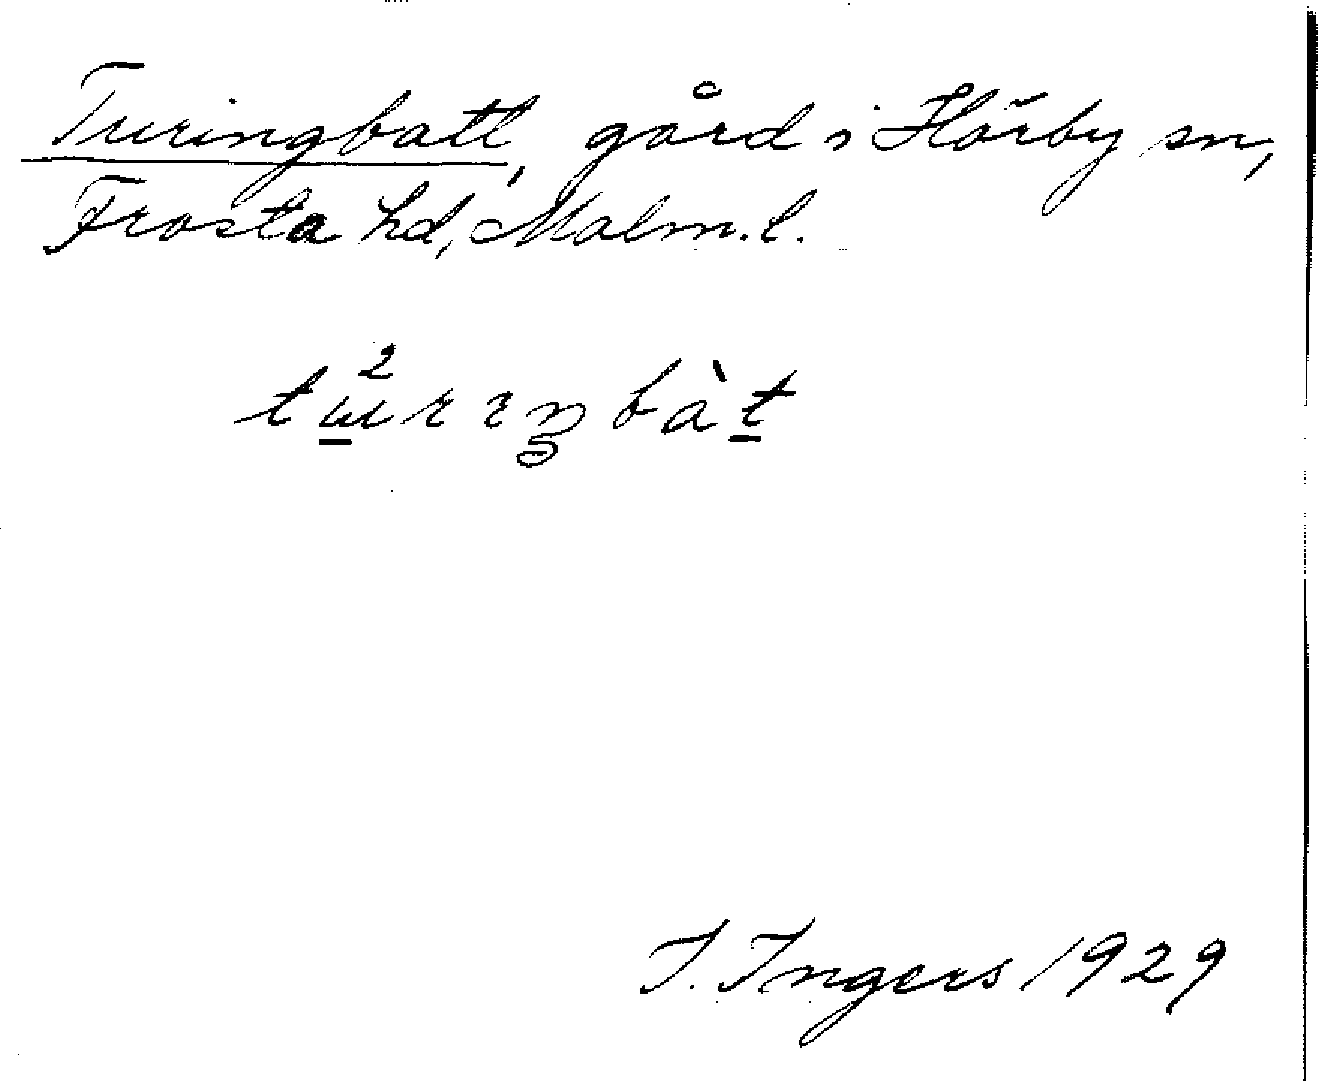 Turingbatt, gård i Hörby sn,
Frosta hd, Malm. l.
I. Ingers 1929